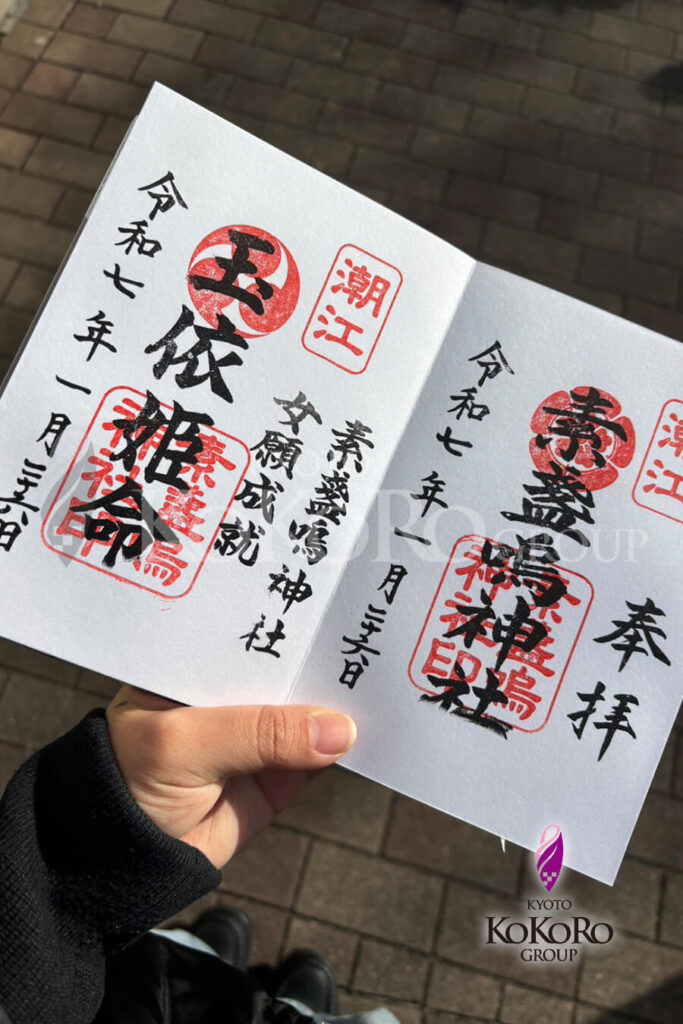 奉拝
潮江
素盞嗚神社
素盞嗚神社印
令和七年一月二十六日
素盞嗚神社
女願成就
潮江
玉依姫命
素盞嗚神社印
令和七年一月二十六日
KOKORO GROUP
KYOTO
KOKORO
GROUP